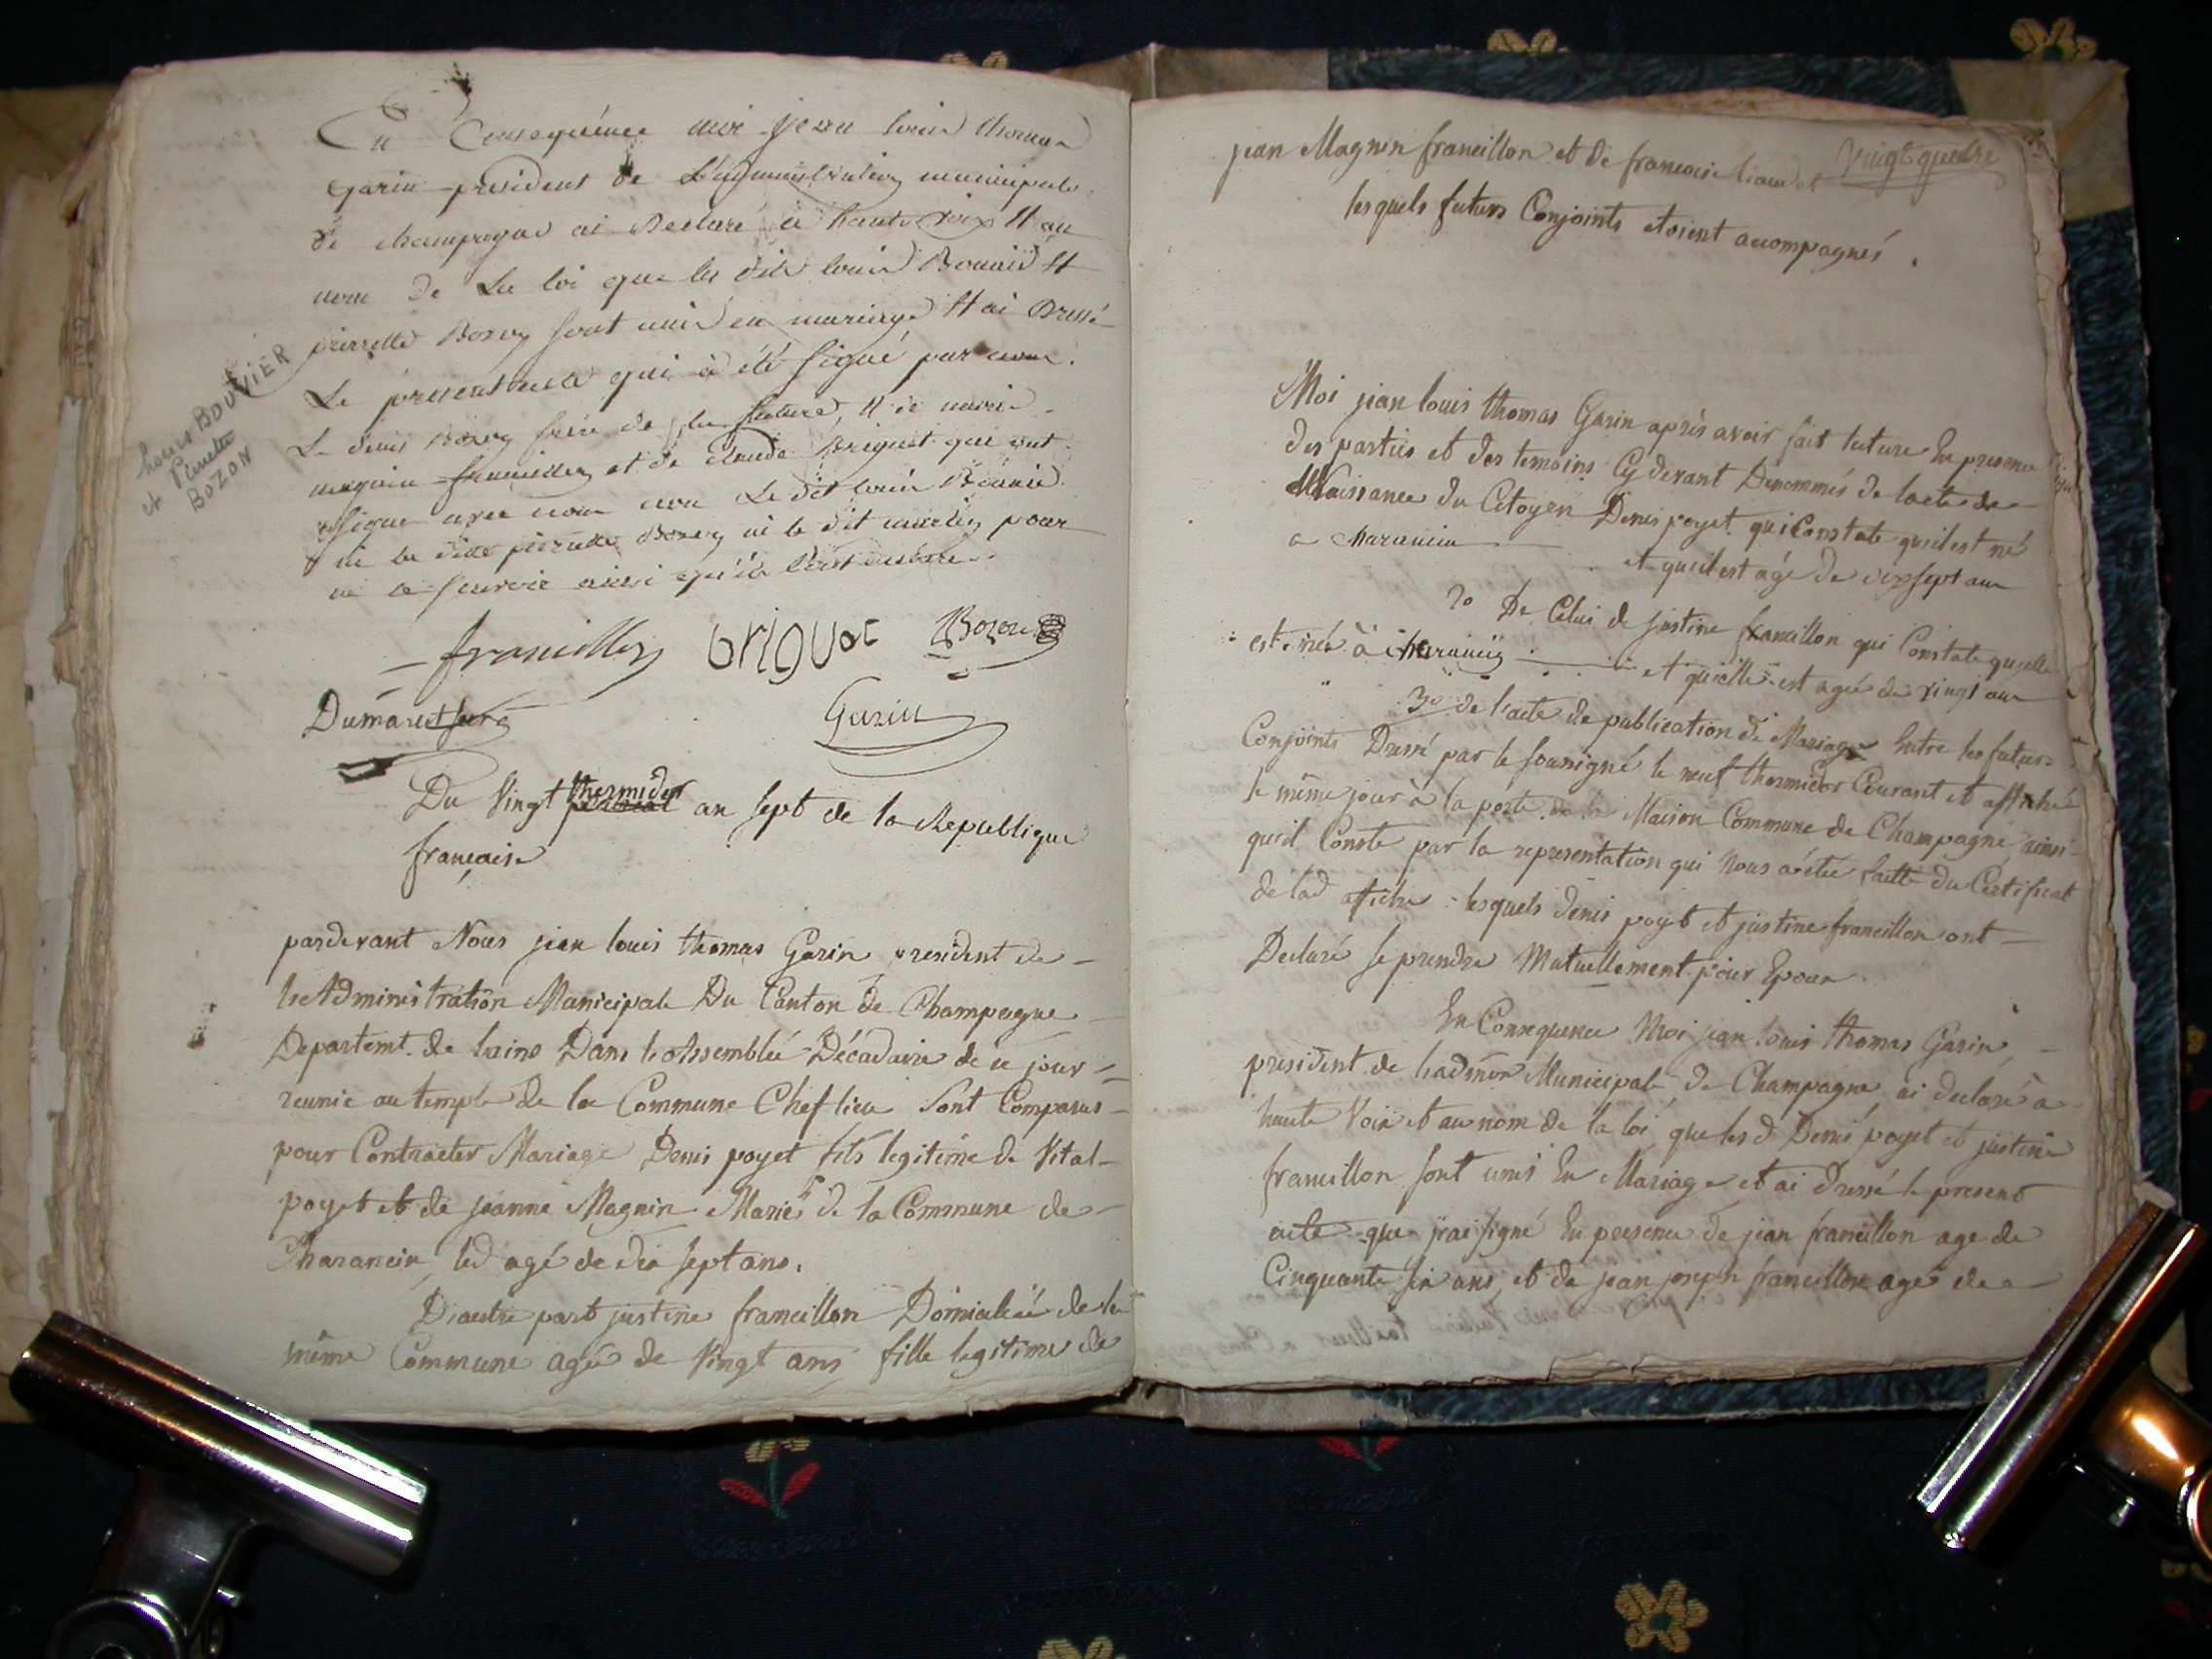 En Consequence moi jean louis thomas
Garin president de L'administration municipale
de champagne ai Declaré a haute voix et au
nom de La loi que les dits louis Bouvié et
pierrette Bozon sont unis en mariage et ai Dressé
Le present acte qui à été signé par nous
denis Bozon frere de la future, et de
magnin francillon et de claude Briguet qui ont
signé avec nous non Le dit louis Bouvié
ni la ditte pierrette Bozon ni le dit pour
ne le scavoir ainsi qu'ils l'ont
Louis BOUVIER
et Pierrette
BOZON
francillon briguet Bozon
Dumarest Garin
Du Vingt thermidor an sept de la Republique
française
pardevant Nous jean louis thomas Garin president de
L'Administration Municipale Du Canton de Champagne
Departemt. de Lains Dans L'Assemblée Décadaire de ce jour
reunie au temple de la Commune Chef lieu Sont Comparus
pour Contracter Mariage Denis poyet fils legitime de Vital
poyet et de jeanne Magnin Mariés de la Commune de
Charancin led agé de dix sept ans.
D'autre part justine francillon Domiciliée de la
même Commune agée de Vingt ans fille legitime de
Vingt quatre
jean Magnin francillon et de francoise
lesquels futurs Conjoints etoient accompagnés
Moi jean louis thomas Garin après avoir fait lecture En presence
des parties et des temoins Cy devant Denommés de lacte de
Naissance du Citoyen Denis poyet qui Constate quil est né
a charancin et quil est agé de dix sept ans
2o De Celui de justine francillon qui Constate quelle
est née à charancin et qu'elle est agée de vingt ans
3o de l'acte de publication de Mariage Entre les futurs
Conjoints Dressé par le soussigné le neuf thermidor Courant et affiché
le même jour à la porte de la Maison Commune de Champagne ainsi
quil Conste par la representation qui Nous a été faitte du Certificat
de lad affiche : lesquels denis poyet et justine francillon ont
Declaré se prendre Mutuellement pour Epoux
En Consequence Moi jean louis thomas Garin
president de Ladmon Municipale de Champagne ai declaré a
haute Voix et au nom de la loi que les d Denis poyet et justine
francillon sont unis En Mariage et ai dressé le present
acte que j'rai signé En presence de jean francillon age de
Cinquante six ans et de jean joseph francillon agé de